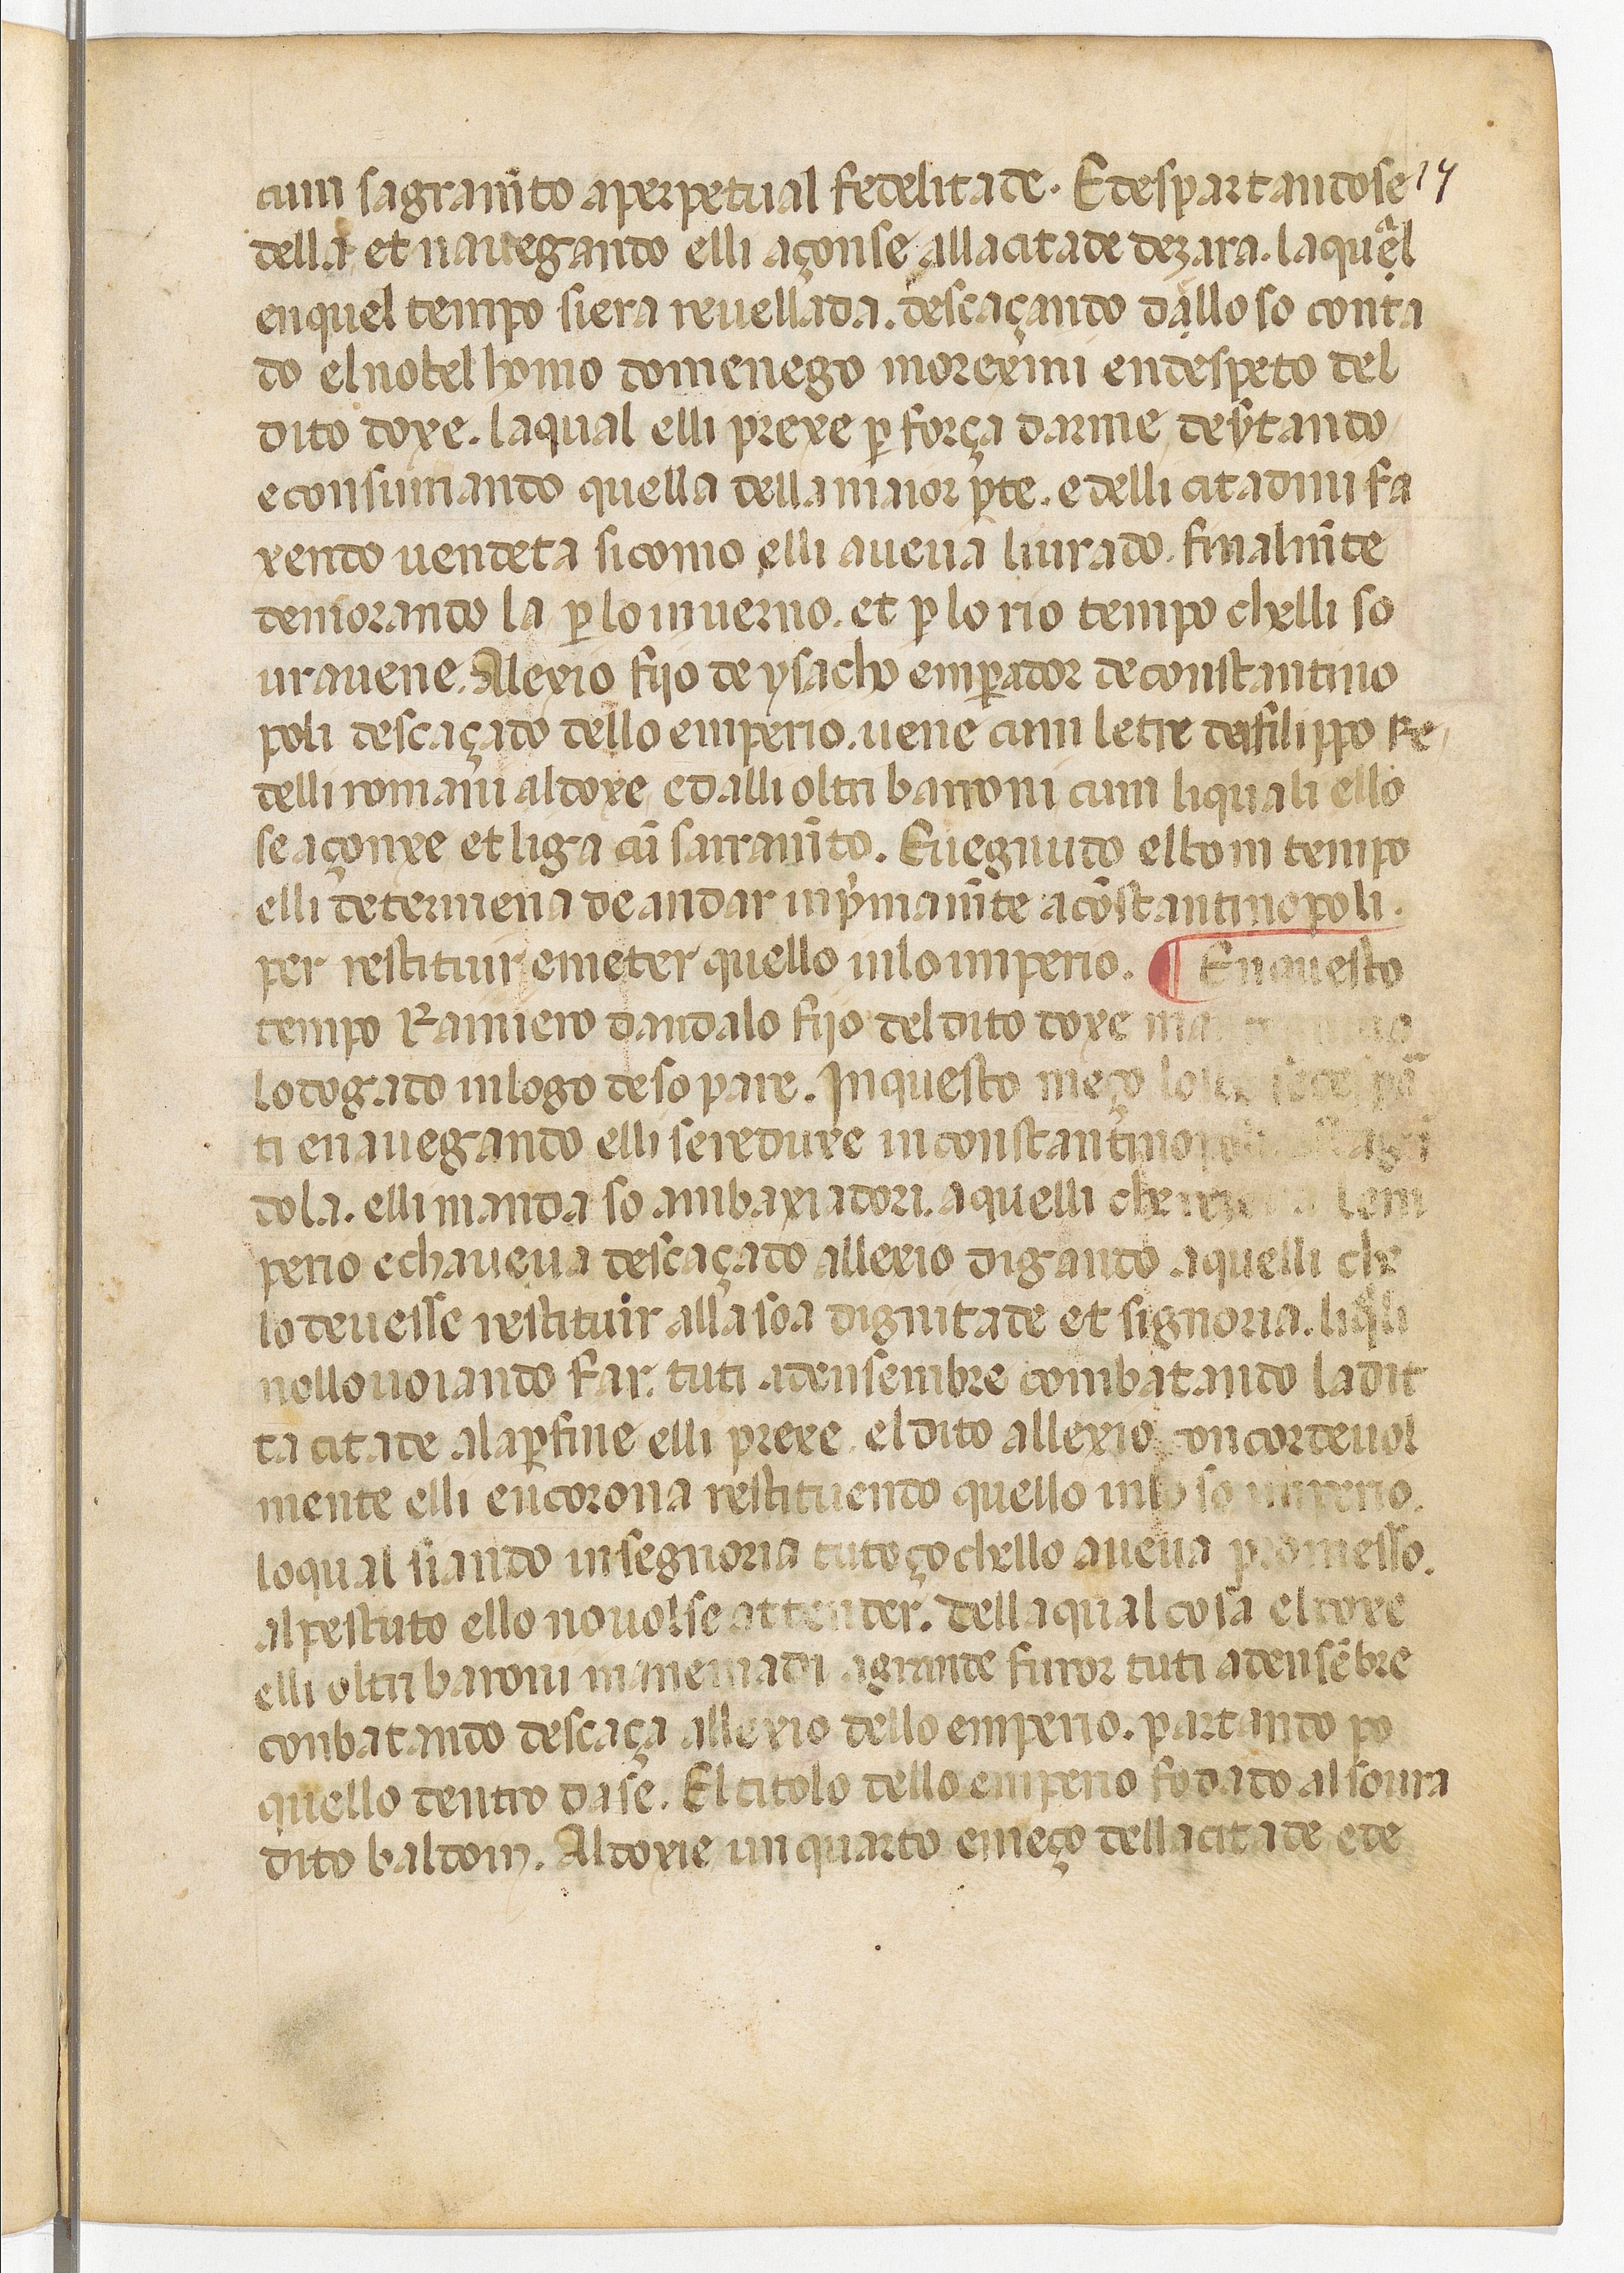 cum sagram̄to aperpetual fedelitade. Edespartandose 17
della et nauegando elli açonse allacitade dezara. laquel
enquel tempo siera reuellada. descaçando dalloso conta
do elnobel homo domenego morexini endespeto del
dito doxe. laqual elli prexe ꝑ força darme deytando
econsumando quella dellamaior ꝑte. edelli citadini fa
xendo uendeta sicomo elli aueua liurado. finalm̄te
demorando la ꝑ loinuerno. et ꝑ lo rio tempo chelli so
urauene. Alexio fijo de ysacho emꝑador deconstantino
poli descaçado dello emperio. uene cum letre defilippo Re
delliromani aldoxe, edalli oltri barroni cum liquali ello
se açonxe et liga cū sarram̄to. Euegnudo elbom tempo
elli determena de andar inpᷓmam̄te acōstantinopoli.
per restituir emeter quello inlo imperio. ¶ Enquesto
tempo Ramiero dandalo fijo deldito doxe
lodogado inlogo deso pare. Inquesto meço
ti enauegando elli seredure in constantinopoli
dola. elli manda so ambaxiadori. aquelli che lem
perio echaueua descaçado allexio digando aquelli che
lodeuesse restituir allasoa dignitade et signoria. liqᷓli
nollouoiando far. tuti adensembre combatando ladit
ta citade alaꝑfine elli prexe. eldito allexio concordeuol
mente elli encorona restituendo quello inlo so imperio.
loqual siando insegnoria tutoço chello aueua promesso.
alpestuto ello nouolse attender. Dellaqual cosa eldoxe
elli oltri baroni agrande furor tuti adensēbre
conbatando descaça allexio dello emperio. partando po
quello dentro dase. Eltitolo dello emperio fodado alsoura
dito baldoin. Aldoxie un quarto emeço dellacitade ede